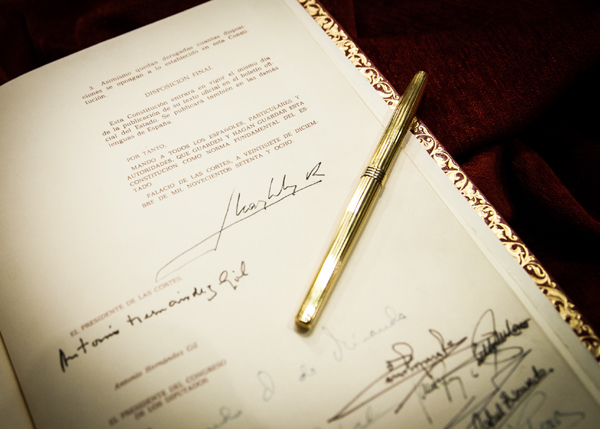 3. Asimismo quedan derogadas cuantas disposi
ciones se opongan a lo establecido en esta Consti
tución.
DISPOSICION FINAL
Esta Constitución entrará en vigor el mismo día
de la publicación de su texto oficial en el boletín ofi
cial del Estado. Se publicará también en las demás
lenguas de España.
POR TANTO,
MANDO A TODOS LOS ESPAÑOLES, PARTICULARES Y
AUTORIDADES, QUE GUARDEN Y HAGAN GUARDAR ESTA
CONSTITUCION COMO NORMA FUNDAMENTAL DEL ES
TADO.
PALACIO DE LAS CORTES, A VEINTISIETE DE DICIEM
BRE DE MIL NOVECIENTOS SETENTA Y OCHO.
EL PRESIDENTE DE LAS CORTES
Antonio Hernández Gil
Antonio Hernández Gil
EL PRESIDENTE DEL CONGRESO
DE LOS DIPUTADOS